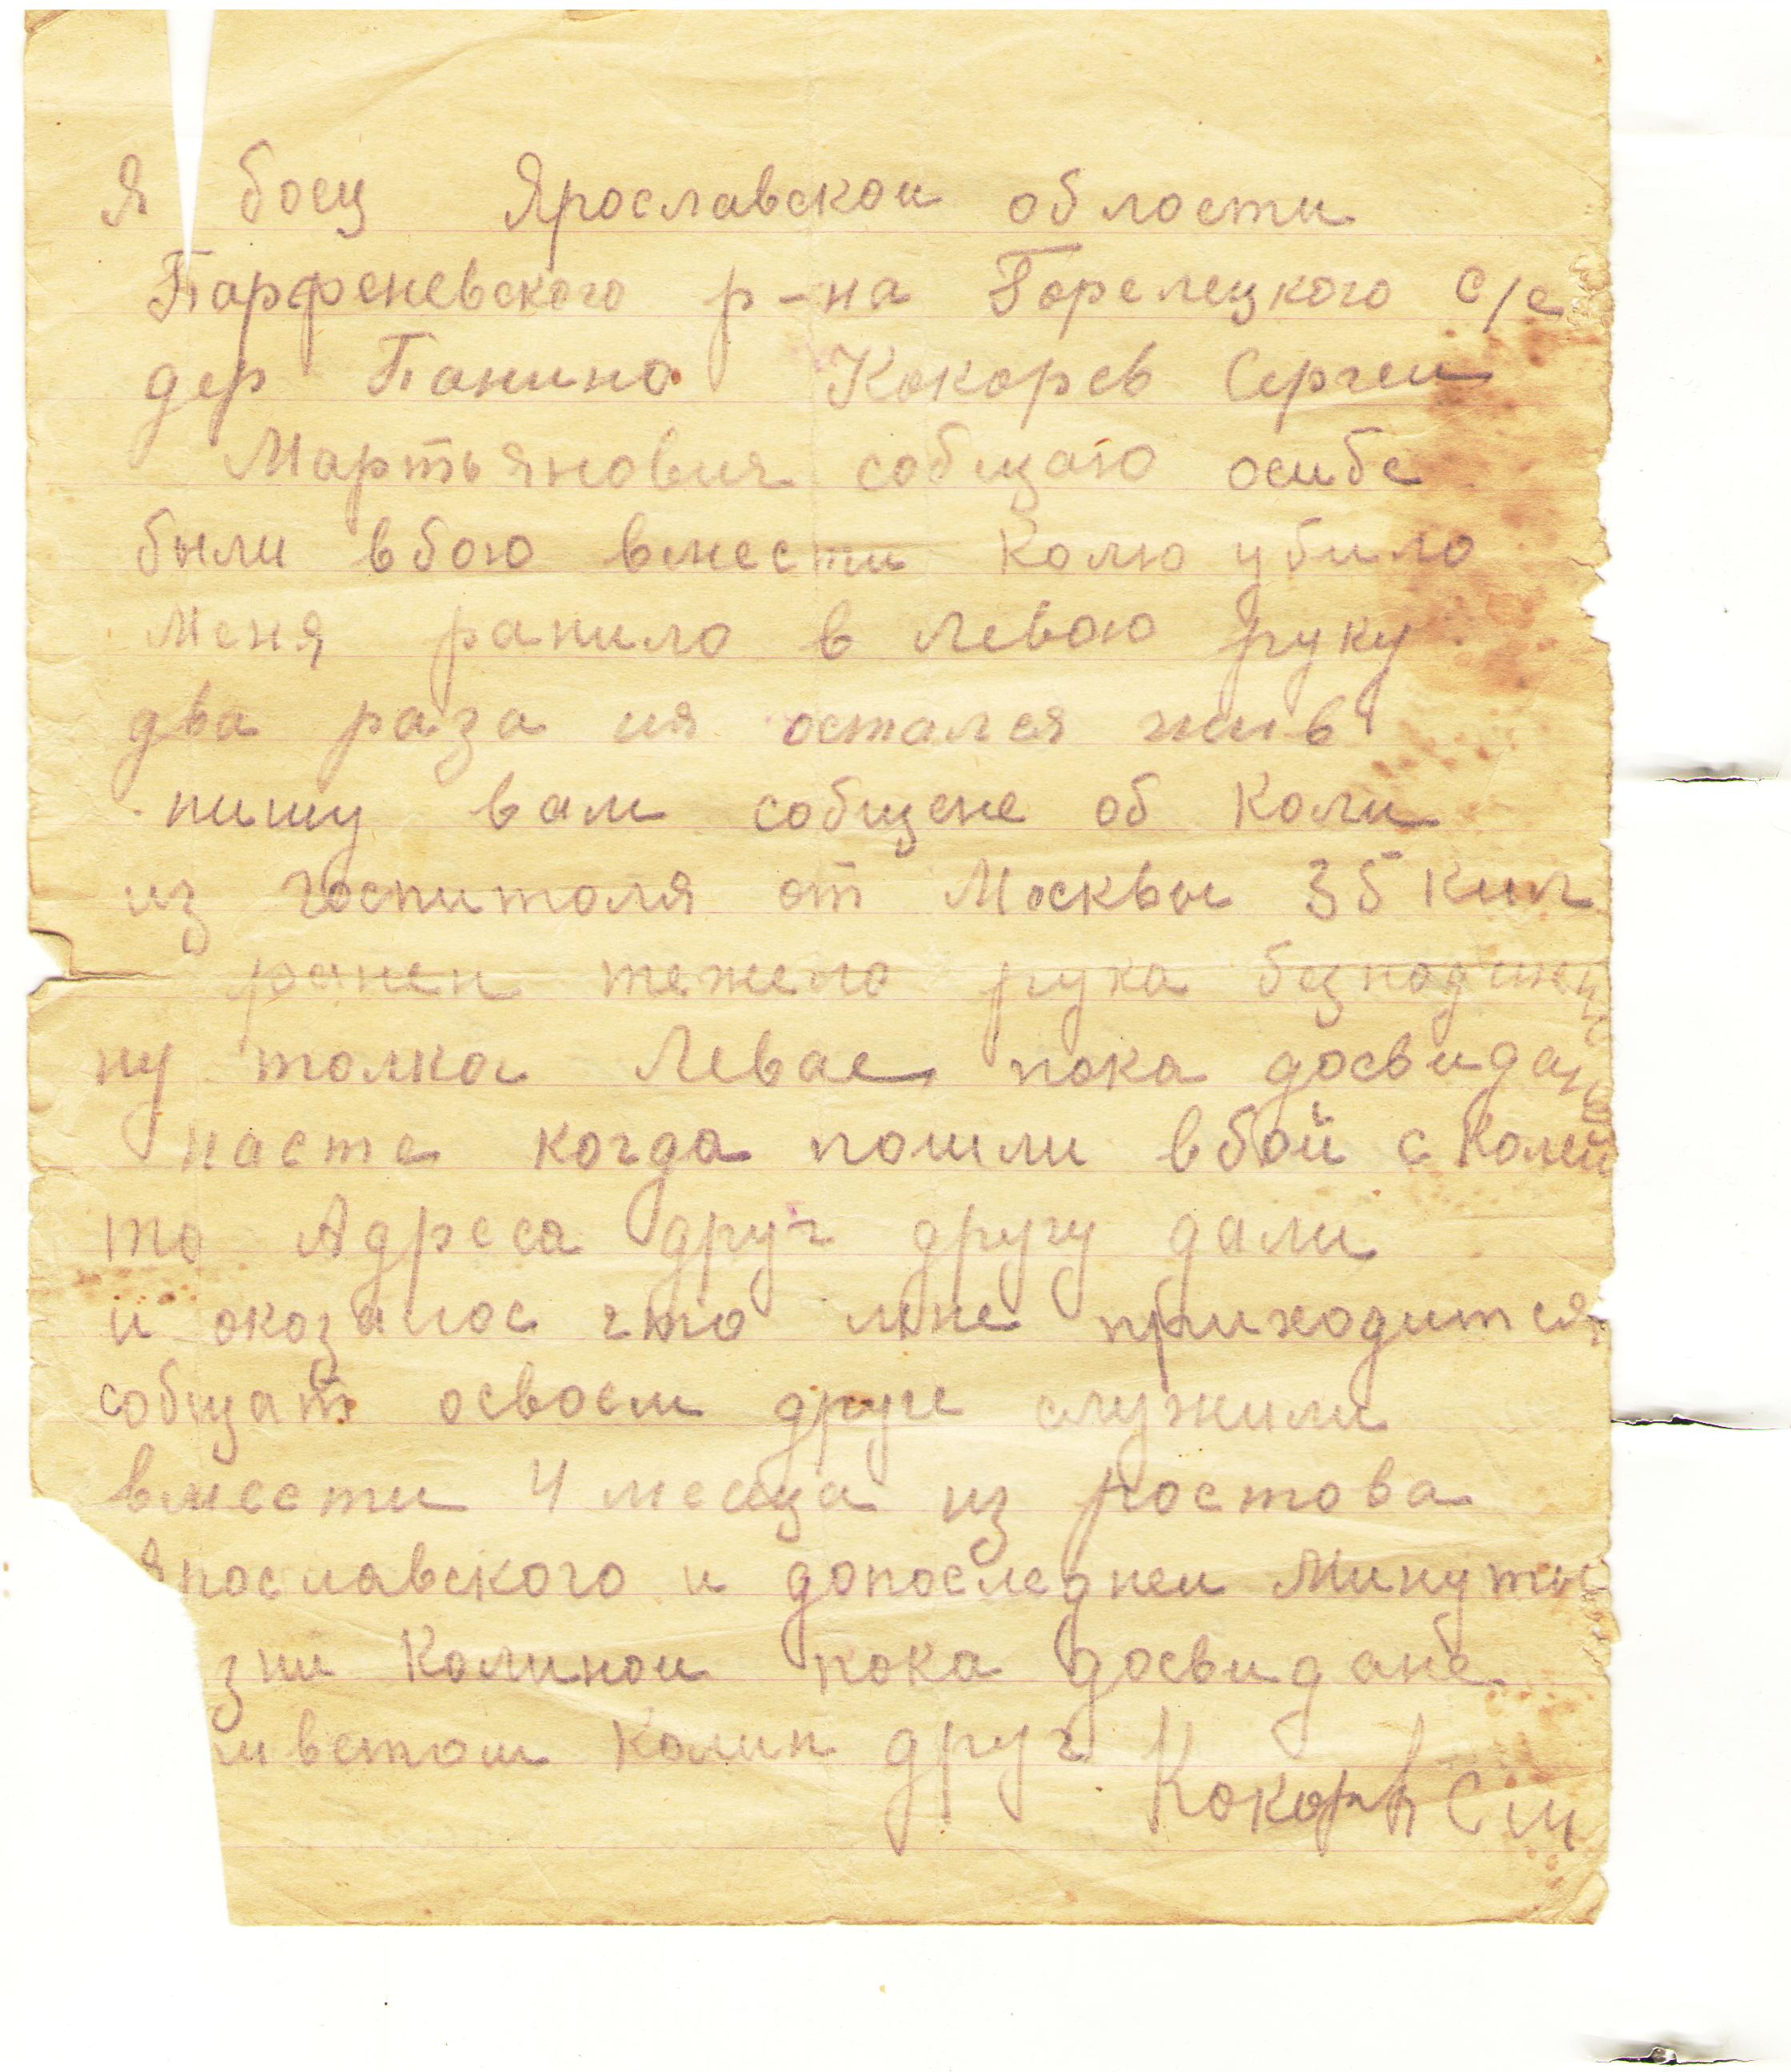 Я боец Ярославскои области
Парфеневского р-на Горелецкого с/с
дер Панино Кокорев Сергеи
Мартьянович собщаю осибе
были вбою вмести Колю убило
Меня ранило в левою руку
два раза ия остался жив
пишу вам собщене об Коли
из госпиталя от Москвы 35 кил
ранен тежело рука
ну толка Левае пока
насте когда пошли вбой с Колей
то Адреса друг другу дали
и оказалос что мне приходится
собщат освоем друге служили
вмести 4 месеца из ростова
Ярославского и допоследнеи Минуты
зни Колинои пока досвидане
иветом Колин друг
Кокорев С М